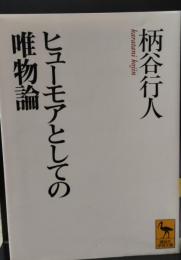 柄谷行人
karatani kojin
ヒューモアとしての
唯物論
講談社
学術文庫